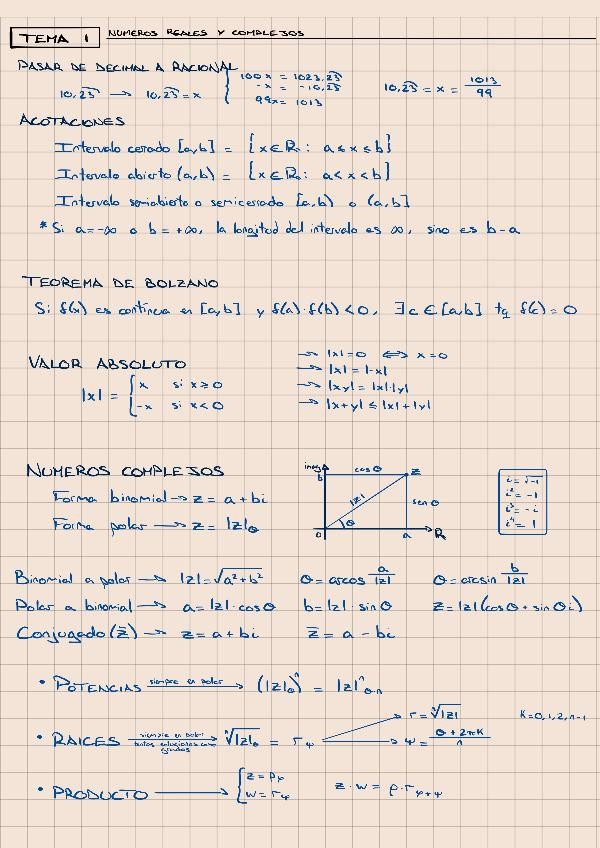 TEMA 1 NUMEROS REALES Y COMPLEJOS
PASAR DE DECIMAL A RACIONAL
10,2̅3̅ → 10,2̅3̅ = x { 100x = 1023,2̅3̅
-x = -10,2̅3̅
99x = 1013
10,2̅3̅ = x = 1013/99
ACOTACIONES
Intervalo cerrado [a,b] = {x ∈ R : a ≤ x ≤ b}
Intervalo abierto (a,b) = {x ∈ R : a < x < b}
Intervalo semiabierto o semicerrado [a,b) o (a,b]
* Si a = -∞ o b = +∞, la longitud del intervalo es ∞, sino es b - a
TEOREMA DE BOLZANO
Si f(x) es continua en [a,b] y f(a)·f(b) < 0, ∃ c ∈ [a,b] tq f(c) = 0
VALOR ABSOLUTO
|x| = { x si x ≥ 0
-x si x < 0
→ |x| = 0 ⟺ x = 0
→ |x| = |-x|
→ |xy| = |x|·|y|
→ |x+y| ≤ |x| + |y|
NUMEROS COMPLEJOS
Forma binomial → z = a + bi
Forma polar → z = |z|θ
imag
b
cos θ
z
|z|
sen θ
θ
0
a
R
i = √-1
i² = -1
i³ = -i
i⁴ = 1
Binomial a polar → |z| = √(a² + b²) θ = arcos a/|z| θ = arcsin b/|z|
Polar a binomial → a = |z|·cos θ b = |z|·sin θ z = |z|(cos θ + sin θ i)
Conjugado (z̅) → z = a + bi z̅ = a - bi
• POTENCIAS siempre en polar → (|z|θ)ⁿ = |z|ⁿ θ·n
• RAICES siempre en polar
tantas soluciones como grados → ⁿ√|z|θ = rψ
→ r = ⁿ√|z|
→ ψ = (θ + 2πK)/n
K = 0, 1, 2, n-1
• PRODUCTO → { z = ρφ
w = rψ
z·w = ρ·r φ+ψ